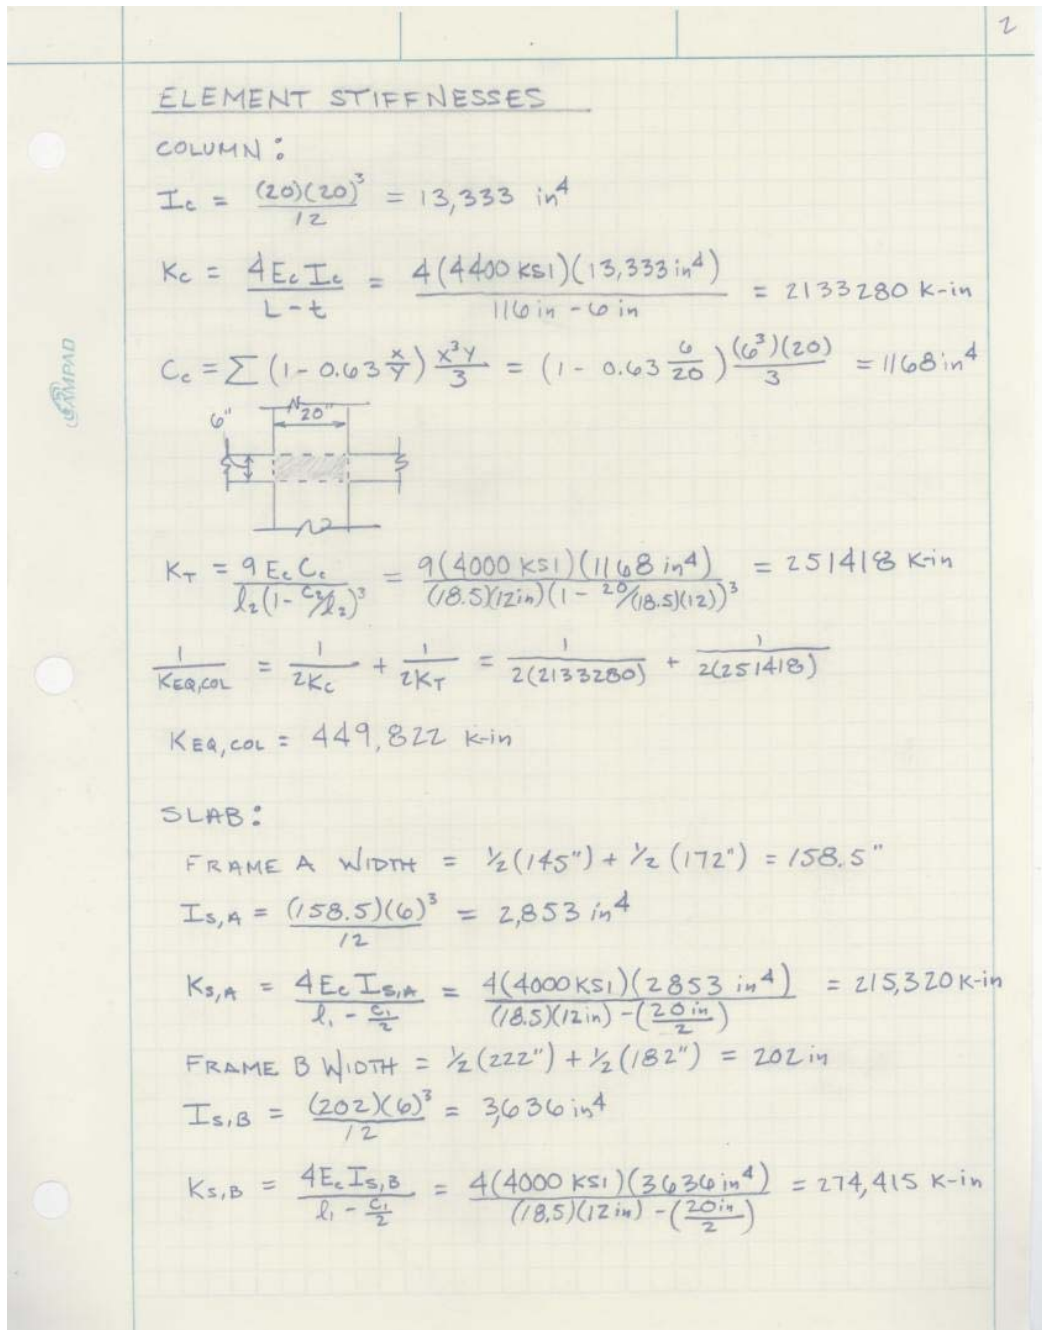 2
ELEMENT STIFFNESSES
COLUMN:
I_c = (20)(20)³/12 = 13,333 in⁴
K_c = 4E_c I_c/(L-t) = 4(4400 KSI)(13,333 in⁴)/(116 in - 6 in) = 2133280 K-in
C_c = Σ(1-0.63 x/y) x³y/3 = (1-0.63 6/20) (6³)(20)/3 = 1168 in⁴
6" 20"
K_T = 9 E_c C_c/(l₂(1-C₂/l₂)³) = 9(4000 KSI)(1168 in⁴)/((18.5)(12in)(1-20/(18.5)(12))³) = 251418 K-in
1/K_EQ,COL = 1/2K_c + 1/2K_T = 1/2(2133280) + 1/2(251418)
K_EQ,COL = 449,822 K-in
SLAB:
FRAME A WIDTH = ½(145") + ½(172") = 158.5"
I_S,A = (158.5)(6)³/12 = 2,853 in⁴
K_S,A = 4E_c I_S,A/(l₁ - c₁/2) = 4(4000 KSI)(2853 in⁴)/((18.5)(12in) - (20in/2)) = 215,320 K-in
FRAME B WIDTH = ½(222") + ½(182") = 202 in
I_S,B = (202)(6)³/12 = 3,636 in⁴
K_S,B = 4E_c I_S,B/(l₁ - c₁/2) = 4(4000 KSI)(3636 in⁴)/((18.5)(12in) - (20in/2)) = 274,415 K-in
CAMPAD